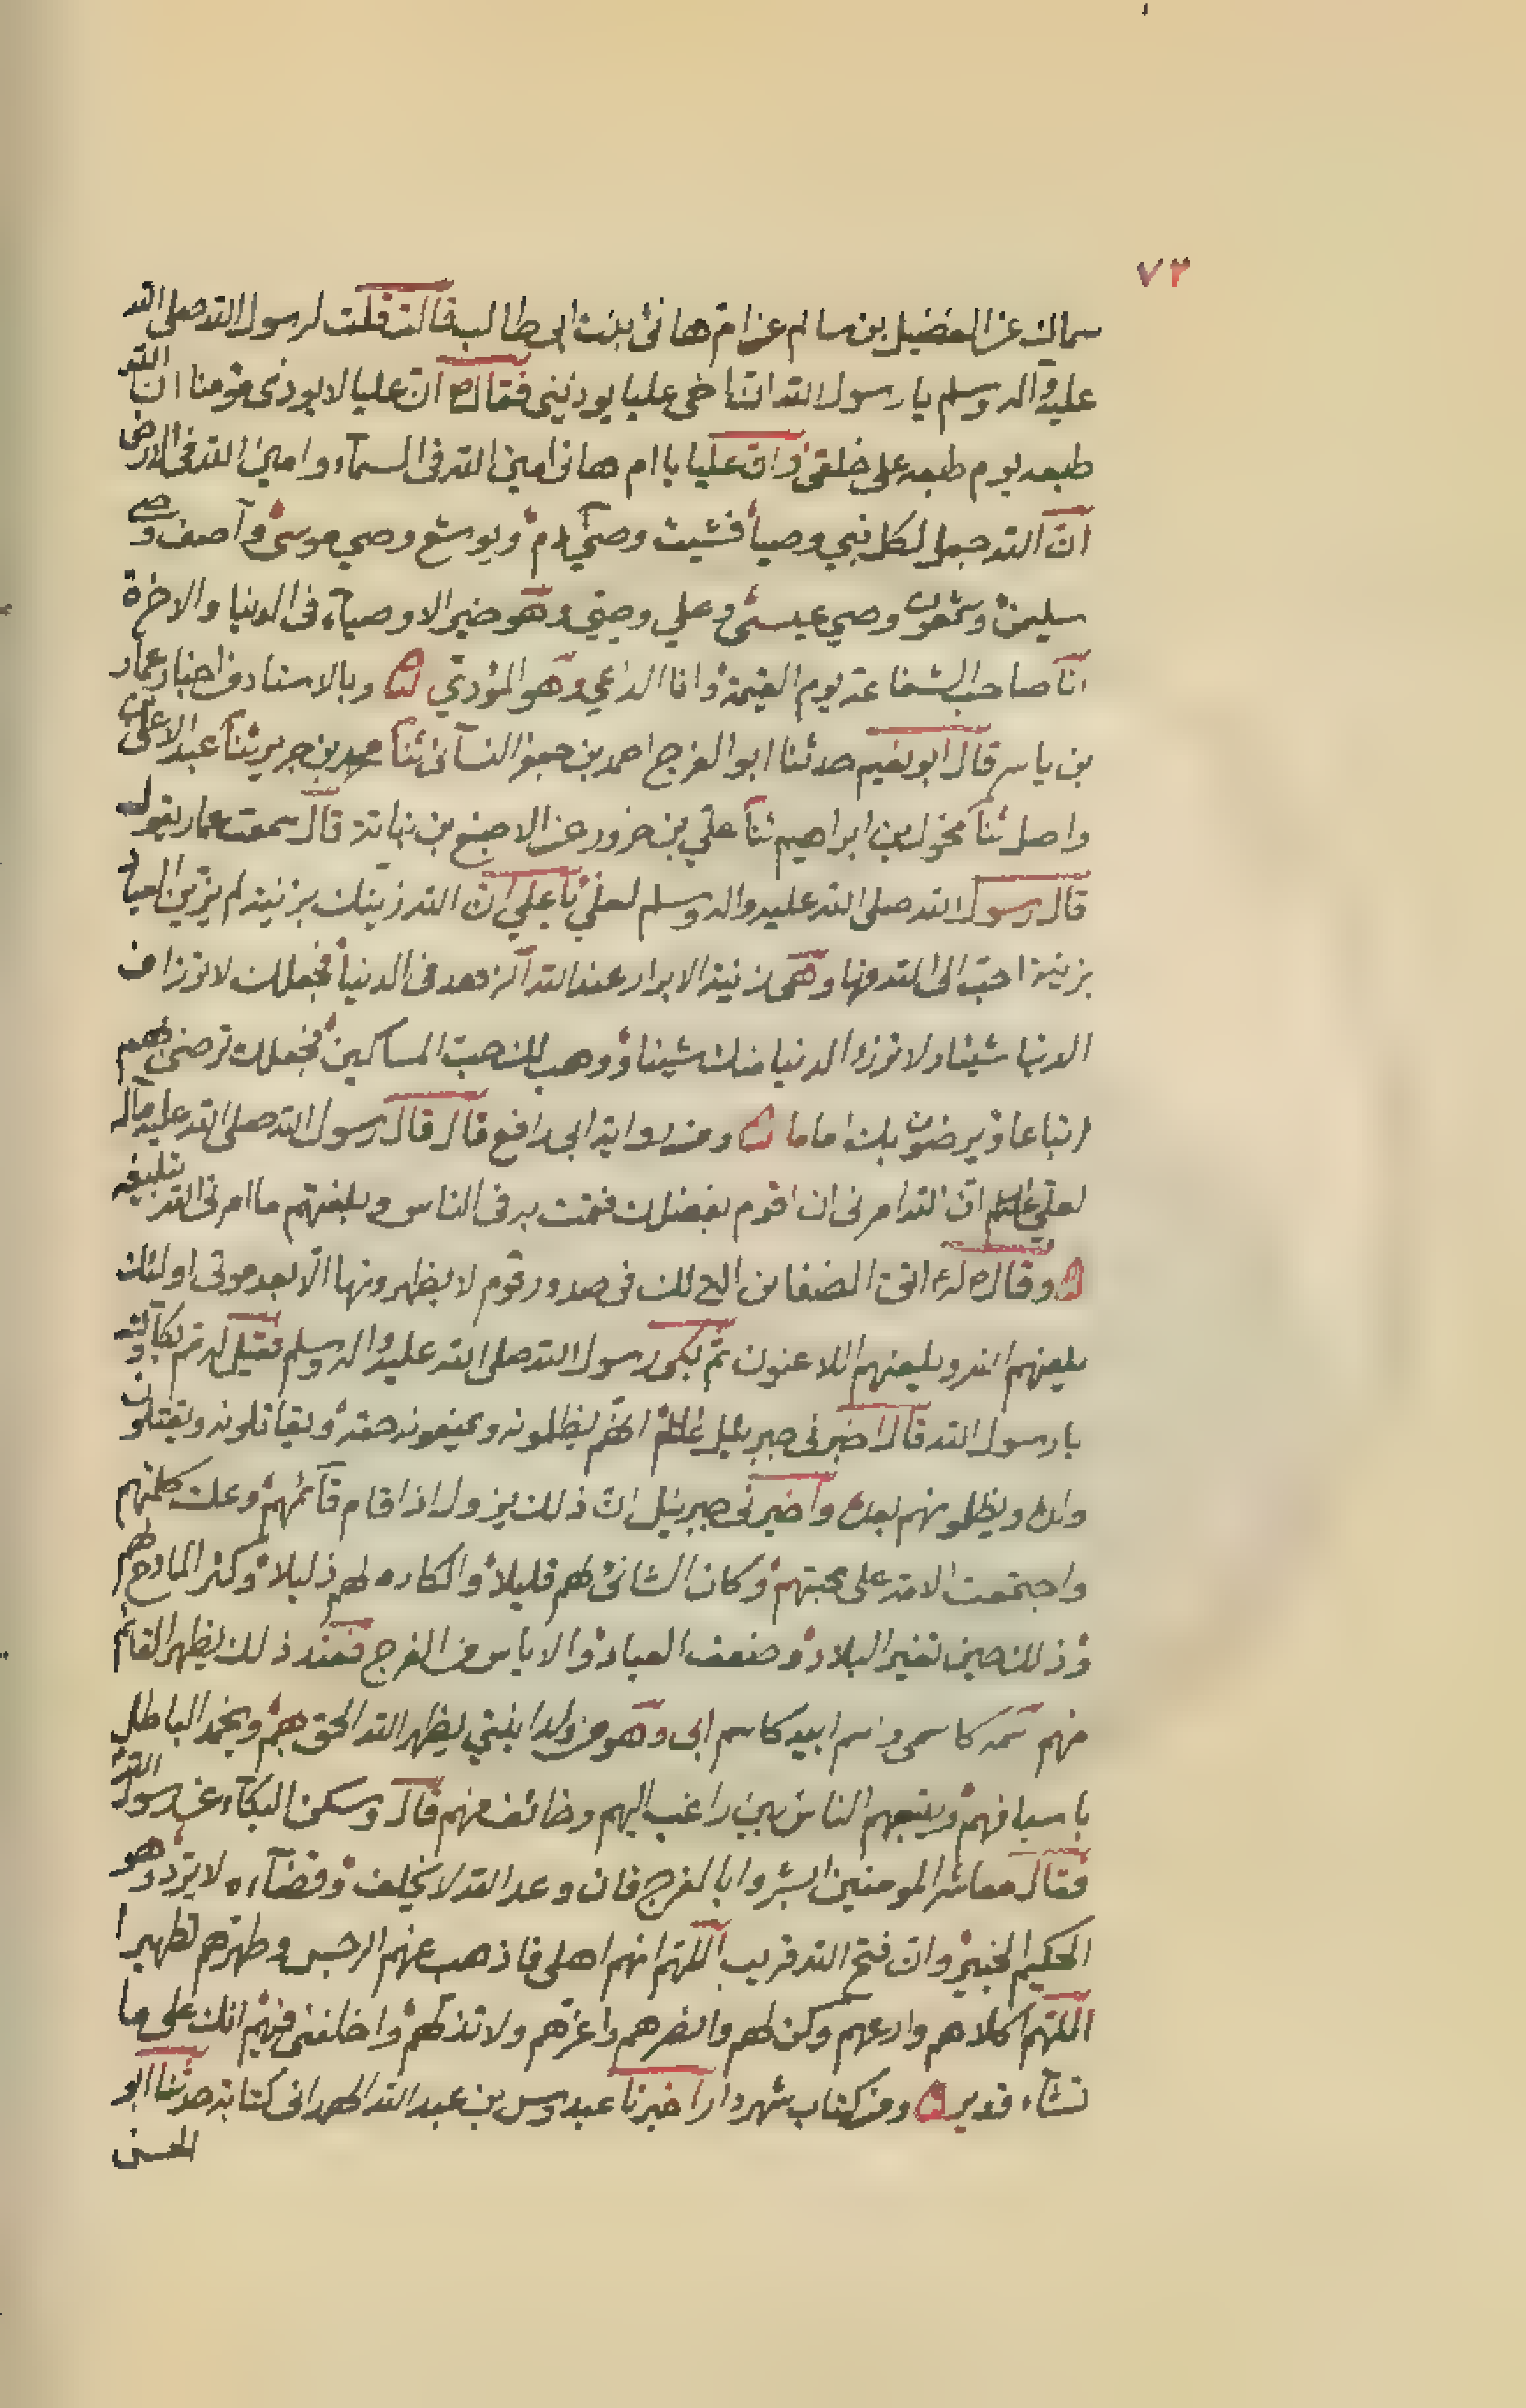 ٧٣
سماك عن المفضيل بن سالم عن ام هانئ بنت ابى طالب قالت قلت لرسول الله صلى الله
عليه وآله وسلم يا رسول الله ان اخى عليا يوذينى فقال ص ان عليا لا يوذى مؤمنا ان الله
طبعه يوم طبعه على خلقى وان عليا يا ام هانى امين الله فى السمآء وامين الله فى الارض
ان الله جعل لكل نبي وصيا فشيث وصي آدم ويوشع وصي موسى وآصف وصي
سليمن وشمعون وصي عيسى وعلي وصيي وهو خير الاوصيآء فى الدنيا والاخرة
انا صاحب الشفاعة يوم القيمة وانا الداعي وهو المؤدي وبالاسناد فى اخبار عمار
بن ياسر قال ابو نعيم حدثنا ابو الفرج احمد بن جعفر النسآئى ثنا محمد بن جرير ثنا عبد الاعلى بن
واصل ثنا مخول بن ابراهيم ثنا علي بن حزور عن الاصبغ بن نباتة قال سمعت عمار يقول
قال رسول الله صلى الله عليه واله وسلم لعلي يا علي ان الله زينك بزينة لم يزين العباد
بزينة احب الى الله منها وهى زينة الابرار عند الله الزهد فى الدنيا فجعلك لا ترزا من
الدنيا شيئا ولا ترزء الدنيا منك شيئا ووهب لك حب المساكين فجعلك ترضى بهم
اتباعا ويرضون بك اماما ومن رواية ابى رافع قال قال رسول الله صلى الله عليه وآله
لعلي ان الله امرنى ان اقوم بفضلك فقمت به فى الناس وبلغتهم ما امرنى الله بتبليغه
وقال ص له اتق الضغائن التى لك فى صدور قوم لا يظهرونها الا بعد موتى اولئك
يلعنهم الله ويلعنهم اللاعنون ثم بكى رسول الله صلى الله عليه واله وسلم فقيل له مم بكآؤك
يا رسول الله قال اخبرنى جبرئيل انهم يظلمونه ويمنعونه حقه ويقاتلونه ويقتلون
ولده ويظلمونهم بعده واخبرنى جبرئيل ان ذلك يزول اذا قام قآئمهم وعلت كلمتهم
واجتمعت الامة على محبتهم وكان الشانئ لهم قليلا والكاره لهم ذليلا وكثر المادح لهم
وذلك حين تغير البلاد وضعف العباد والاياس من الفرج فعند ذلك يظهر القائم
منهم اسمه كاسمى واسم ابيه كاسم ابى وهو من ولد ابنتي يظهر الله الحق بهم ويخمد الباطل
باسيافهم ويتبعهم الناس بين راغب اليهم وخائف منهم قال وسكن البكآء عن رسول الله
فقال معاشر المومنين ابشروا بالفرج فان وعد الله لا يخلف وقضآءه لا يرد وهو
الحكيم الخبير وان فتح الله قريب اللهم انهم اهلى فاذهب عنهم الرجس وطهرهم تطهيرا
اللهم اكلاهم وارعهم وكن لهم وانصرهم واعزهم ولا تذلهم واخلفنى فيهم انك على ما
تشآء قدير ومن كتاب شهردار اخبرنا عبدوس بن عبد الله الهمدانى كتابة حدثنا ابو
الحسن